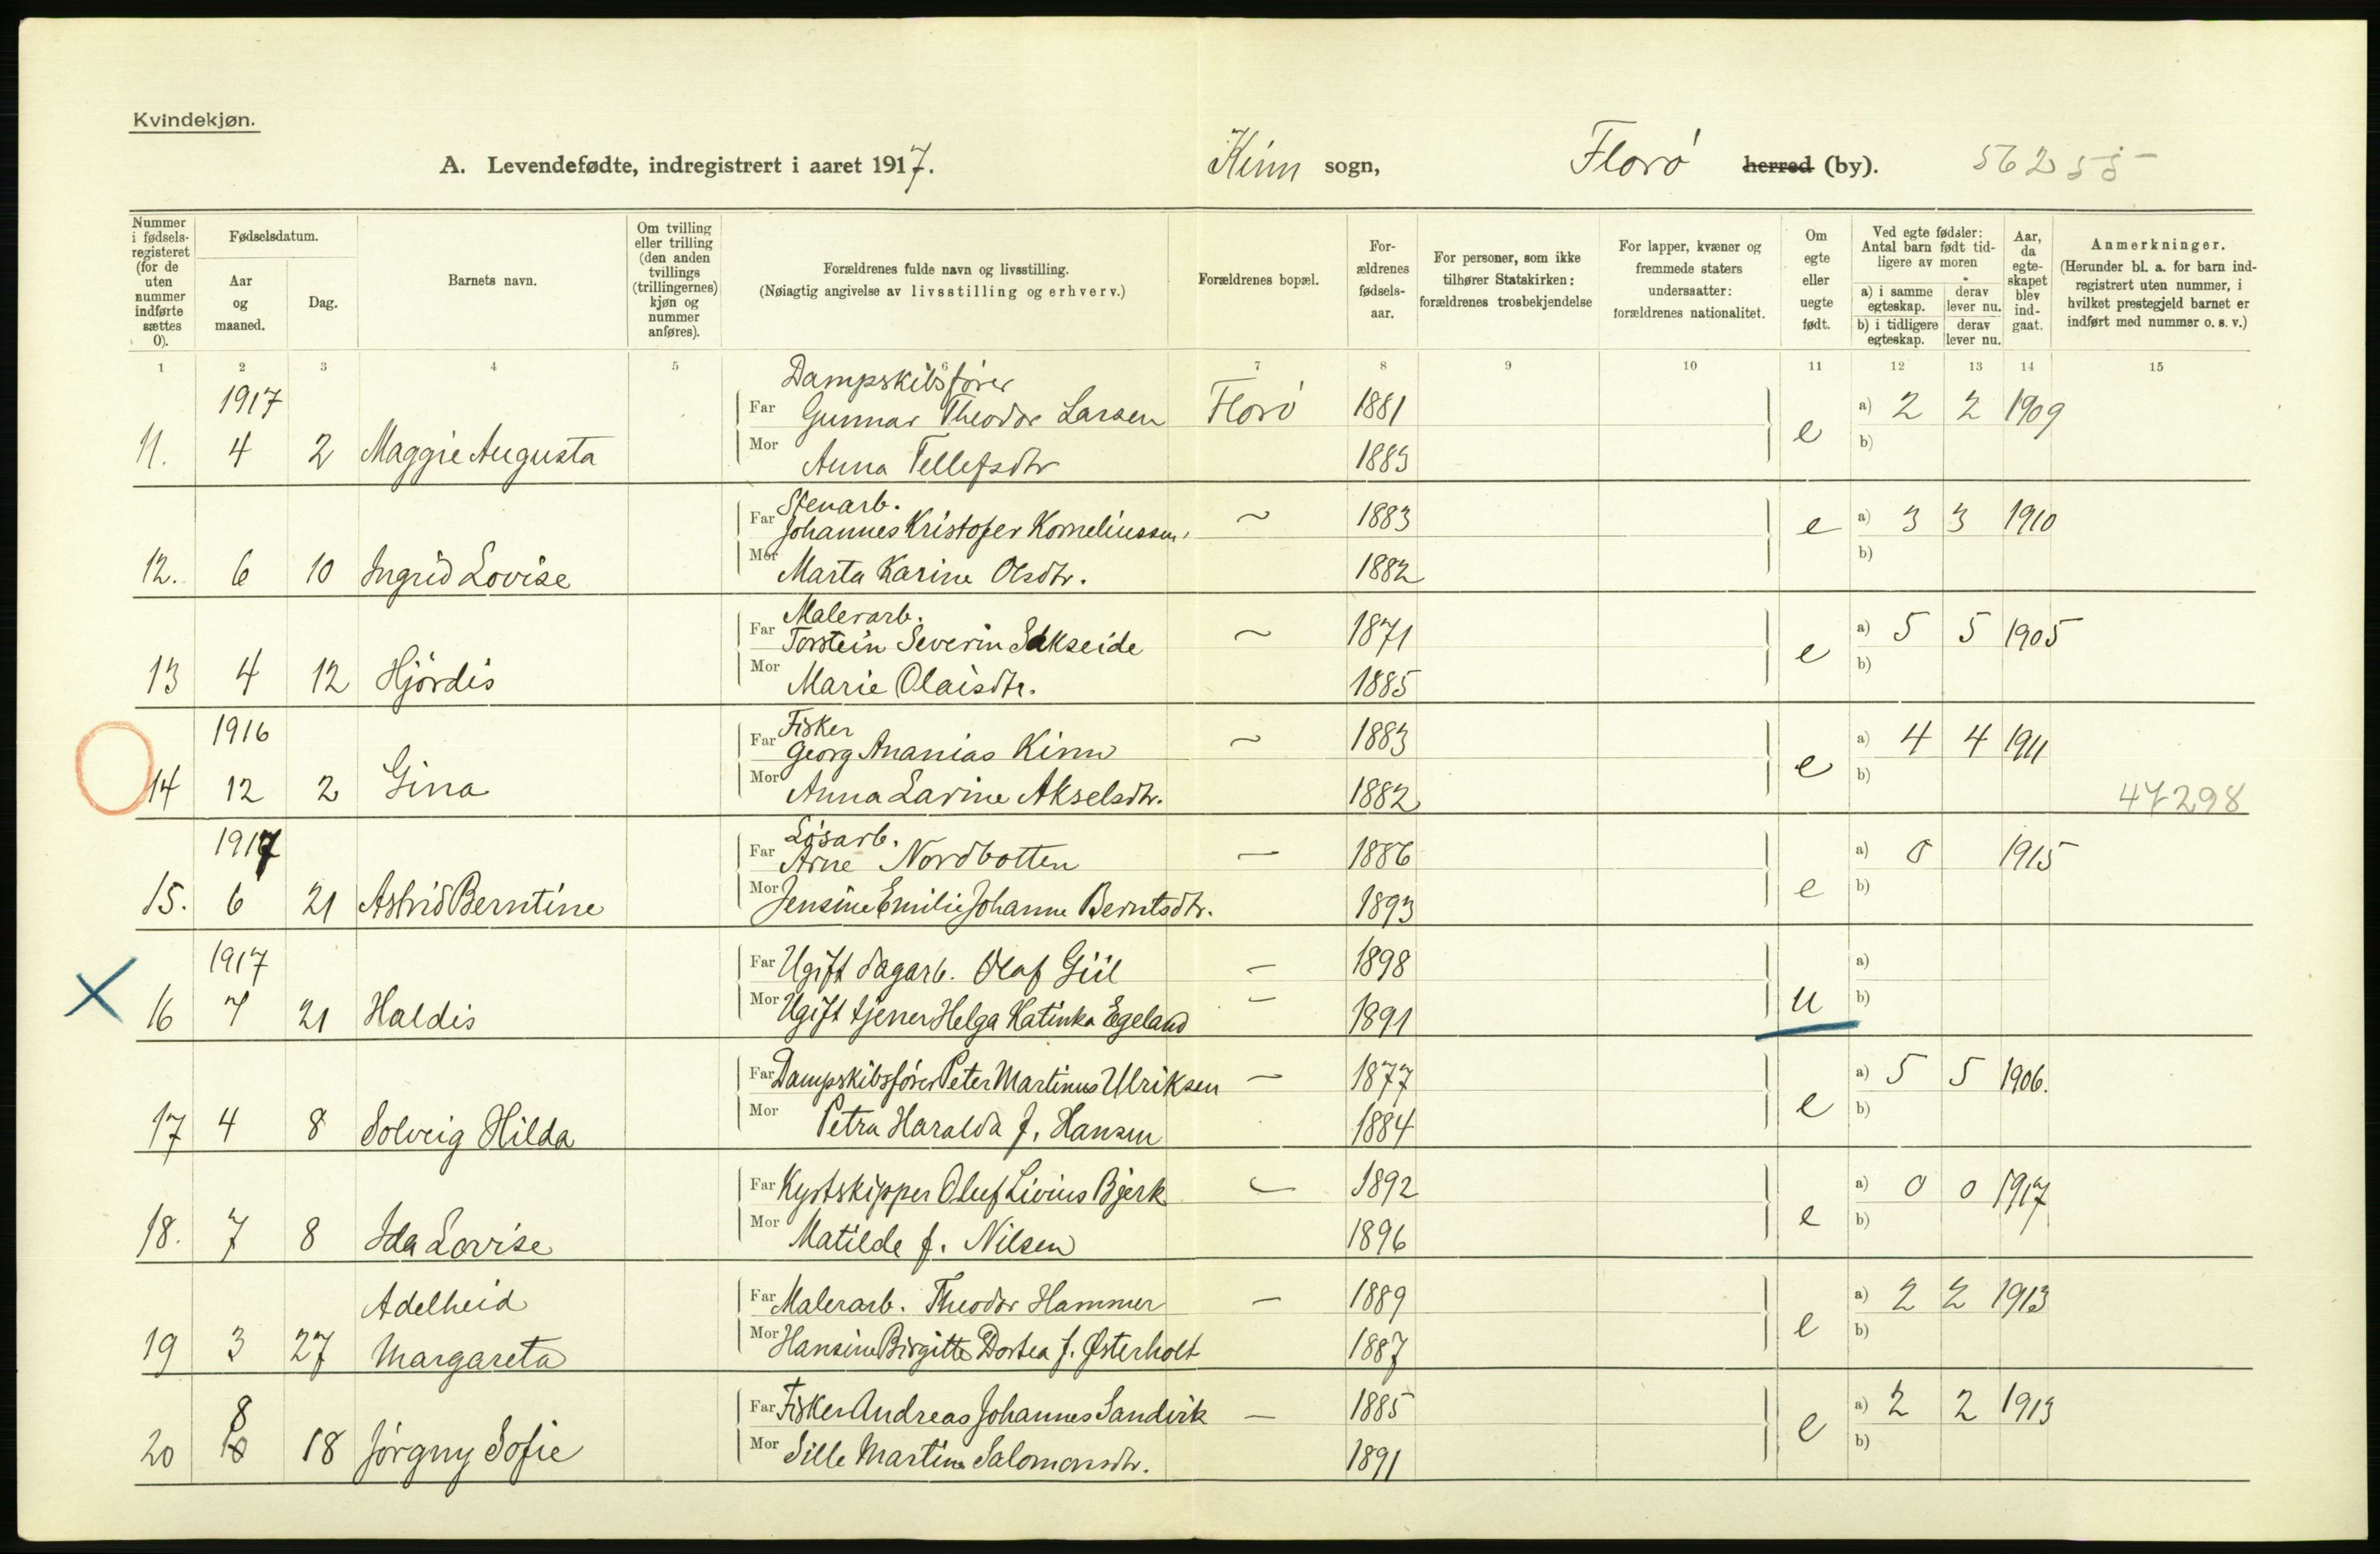 Kvindekjøn.
A. Levendefødte, indregistrert i aaret 1917. Kinn sogn, Florø herred (by). 56255
Nummer i fødsels-registeret (for de uten nummer indførte sættes 0).
Fødselsdatum.
Aar og maaned.
Dag.
Barnets navn.
Om tvilling eller trilling (den anden tvillings (trillingernes) kjøn og nummer anføres).
Forældrenes fulde navn og livsstilling.
(Nøiagtig angivelse av livsstilling og erhverv.)
Forældrenes bopæl.
For-ældrenes fødsels-aar.
For personer, som ikke tilhører Statskirken: forældrenes trosbekjendelse
For lapper, kvæner og fremmede staters undersaatter: forældrenes nationalitet.
Om egte eller uegte født.
Ved egte fødsler: Antal barn født tid-ligere av moren
a) i samme egteskap. derav lever nu.
b) i tidligere egteskap. derav lever nu.
Aar, da egte-skapet blev ind-gaat.
Anmerkninger.
(Herunder bl. a. for barn ind-registrert uten nummer, i hvilket prestegjeld barnet er indført med nummer o. s. v.)
1 2 3 4 5 6 7 8 9 10 11 12 13 14 15
1917 Dampskibsfører
Far Gunnar Theodor Larsen Florø 1881 a) 2 2 1909
11. 4 2 Maggie Augusta Mor Anna Tellefsdtr 1883 e b)
Stenarb.
Far Johannes Kristofer Korneliussen. ~ 1883 e a) 3 3 1910
12. 6 10 Ingrid Lovise Mor Marta Karine Olsdtr. 1882 b)
Malerarb.
Far Torstein Severin Sekseide ~ 1871 a) 5 5 1905
13 4 12 Hjørdis Mor Marie Olaisdtr. 1885 e b)
1916 Fisker
Far Georg Ananias Kinn ~ 1883 a) 4 4 1911
14 12 2 Gina Mor Anna Larine Akselsdtr. 1882 e b) 47298
1917 Løsarb.
Far Arne Nordbotten — 1886 a) 0 1915
15. 6 21 Astrid Berntine Mor Jensine Emilie Johanne Berntsdtr. 1893 e b)
1917 Far Ugift dagarb. Olaf Giil — 1898 a)
16 7 21 Haldis Mor Ugift tjener Helga Katinka Egeland — 1891 u b)
Far Dampskibsfører Peter Martinus Ulriksen — 1877 a) 5 5 1906.
17 4 8 Solveig Hilda Mor Petra Haralda f. Hansen 1884 e b)
Far Kystskipper Oluf Livius Bjerk — 1892 a) 0 0 1917
18. 7 8 Ida Lovise Mor Matilde f. Nilsen 1896 e b)
Adelheid Far Malerarb. Theodor Hammer — 1889 a) 2 2 1913
19 3 27 Margareta Mor Hansine Birgitte Dortea f. Østerholt 1887 e b)
8 Far Fisker Andreas Johannes Sandvik — 1885 a) 2 2 1913
20 18 Jørgny Sofie Mor Sille Martine Salomonsdtr. 1891 e b)